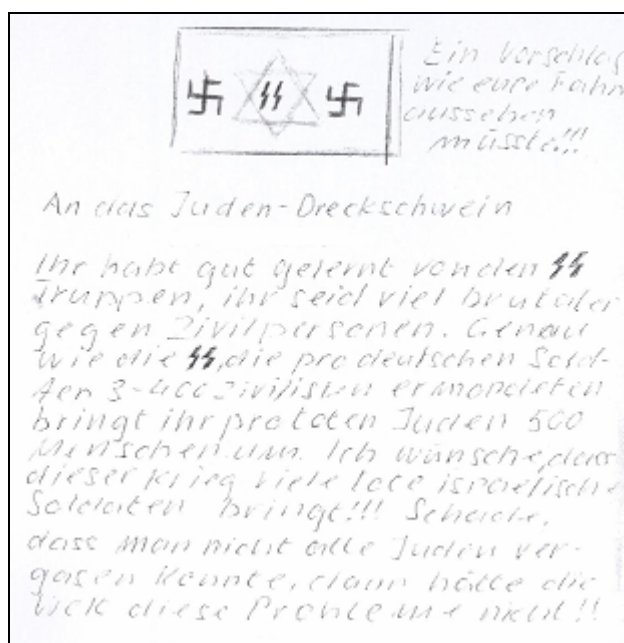 Ein Vorschlag
wie eure Fahn
aussehen
müsste!!!
SS
An das Juden-Dreckschwein
Ihr habt gut gelernt von den SS
Truppen, ihr seid viel brutaler
gegen Zivilpersonen. Genau
wie die SS, die pro deutschen Sold-
ten 3-400 Zivilisten ermordeten
bringt ihr pro toten Juden 500
Menschen um. Ich wünsche, dass
dieser Krieg viele tote israelische
Soldaten bringt!!! Schade,
dass man nicht alle Juden ver-
gasen konnte, dann hätte die
diese Probleme nicht!!